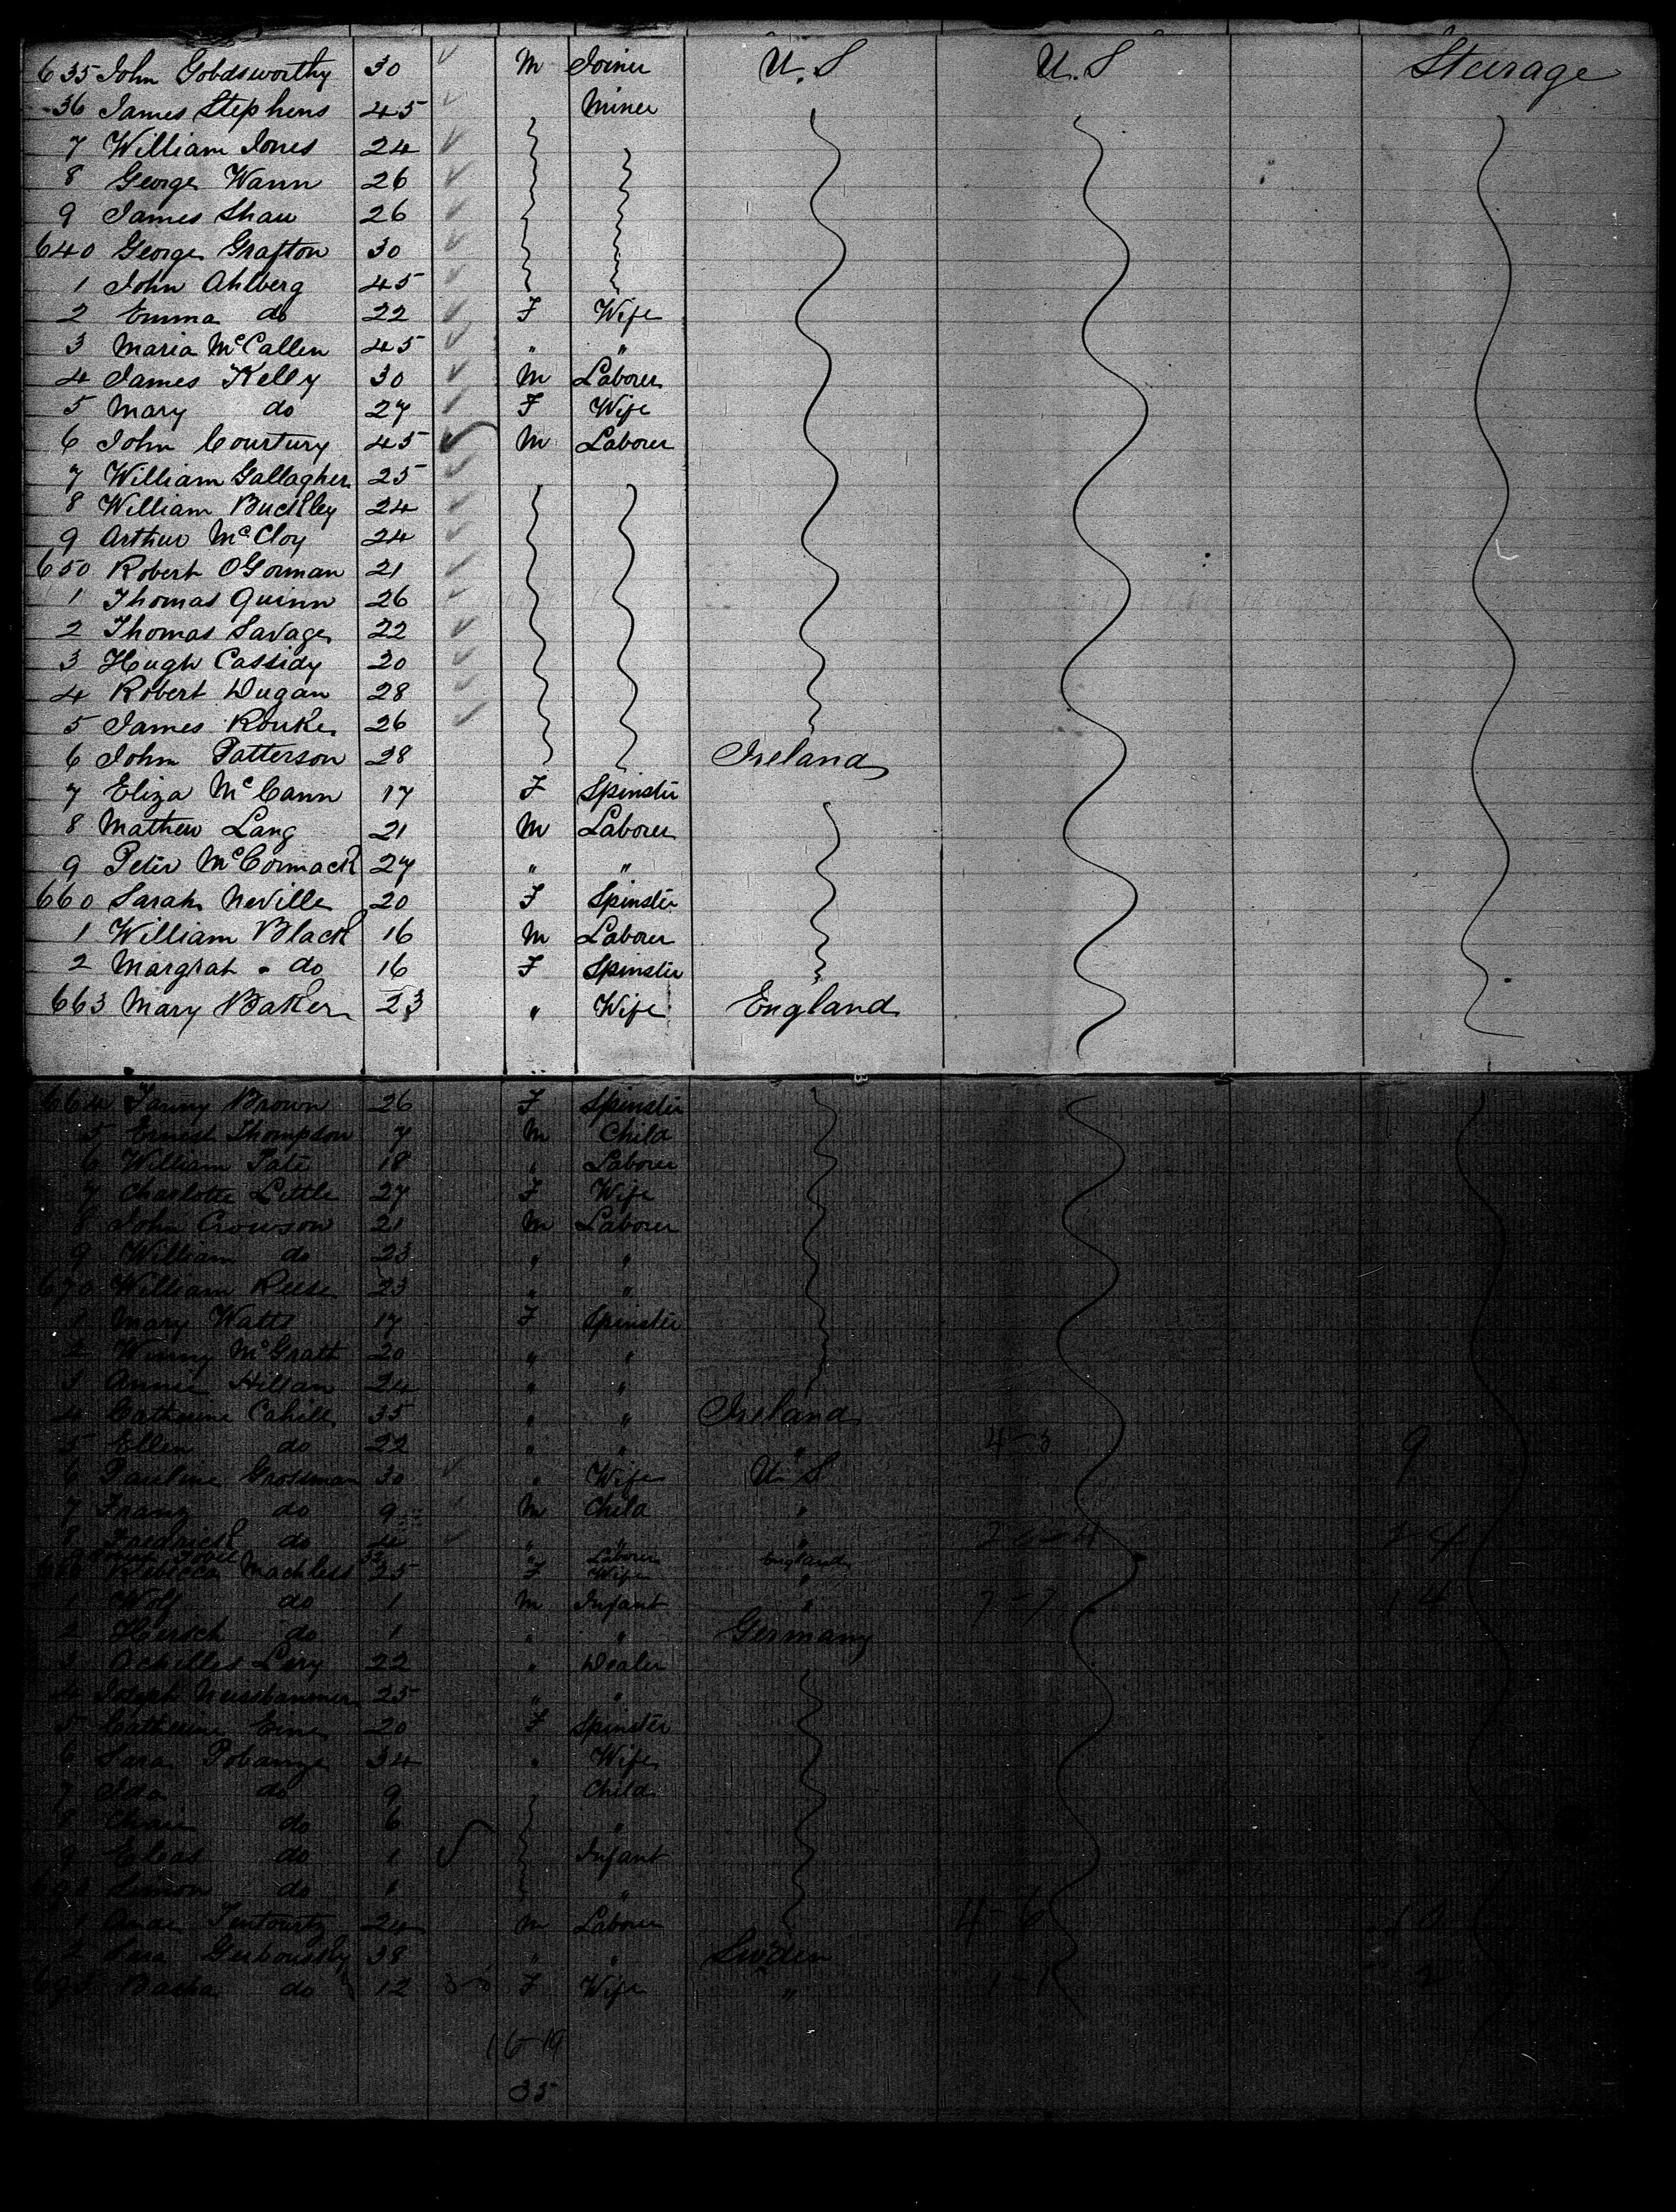 635 John Goldsworthy 30 M Joiner U.S U.S Steerage
36 James Stephens 45 Miner
7 William Jones 24
8 George Wann 26
9 James Shaw 26
640 George Grafton 30
1 John Ahlberg 45
2 Emma do 22 F Wife
3 Maria McCallen 45 " "
4 James Kelly 30 M Laborer
5 Mary do 27 F Wife
6 John Courtury 45 M Laborer
7 William Gallagher 25
8 William Buckley 24
9 Arthur McCloy 24
650 Robert OGorman 21
1 Thomas Quinn 26
2 Thomas Savage 22
3 Hugh Cassidy 20
4 Robert Dugan 28
5 James Rourke 26
6 John Patterson 28 Ireland
7 Eliza McCann 17 F Spinster
8 Mathew Lang 21 M Laborer
9 Peter McCormack 27 " "
660 Sarah Neville 20 F Spinster
1 William Black 16 M Laborer
2 Margrat do 16 F Spinster
663 Mary Baker 23 " Wife England
664 Fanny Brown 26 F Spinster
5 Ernest Thompson 7 M Child
6 William Tate 18 " Laborer
7 Charlotte Little 27 F Wife
8 John Crowson 21 M Laborer
9 William do 23 " "
670 William Reese 23 " "
1 Mary Watts 17 F Spinster
2 Winny McGrath 20 " "
3 Annie Hillan 24 " "
4 Catherine Cahill 35 " " Ireland
5 Ellen do 22 " " " 4-3 9
6 Pauline Grossman 30 " Wife U.S
7 Franz do 9 M Child "
8 Fredrick do 4 " " "
Laborer England
680 Rebecca Machless 25 F Wife "
1 Wolf do 1 M Infant " 7-7 14
2 Hersch do 1 " " Germany
3 Achilles Levy 22 " Dealer
4 Joseph Nussbaumer 25 " "
5 Catherine Eine 20 F Spinster
6 Sara Pobanze 34 " Wife
7 Ida do 9 Child
8 do 6 "
9 Elias do 1 Infant
690 Simon do "
1 24 M Laborer 4-6 10
2 38 " " Sweden
693 Basha do 12 F Wife " 1-1 2
16-19
35